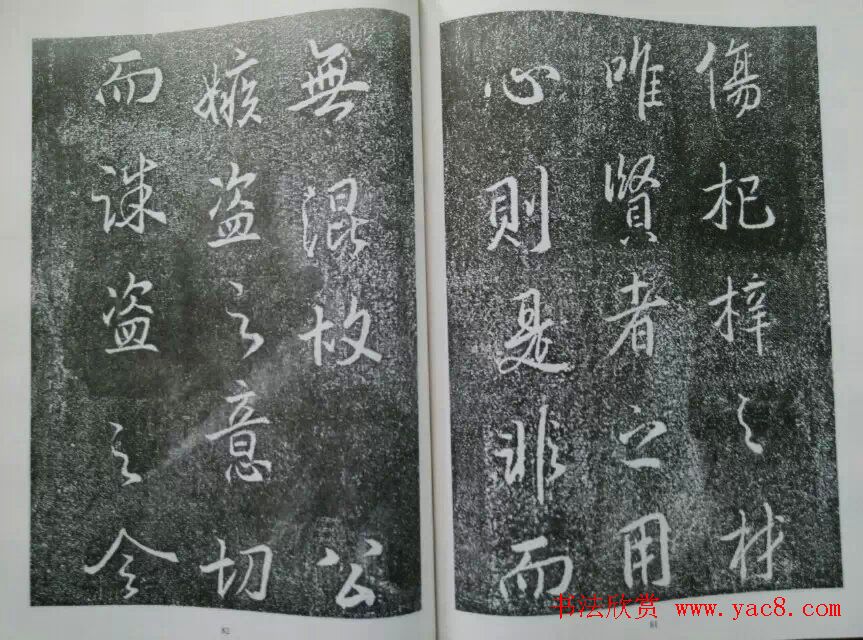 傷杞梓之材
唯賢者之用
心則是非而
無混故 公
嫉盗之意切
而誅盗之令
81
82
书法欣赏 www.yac8.com